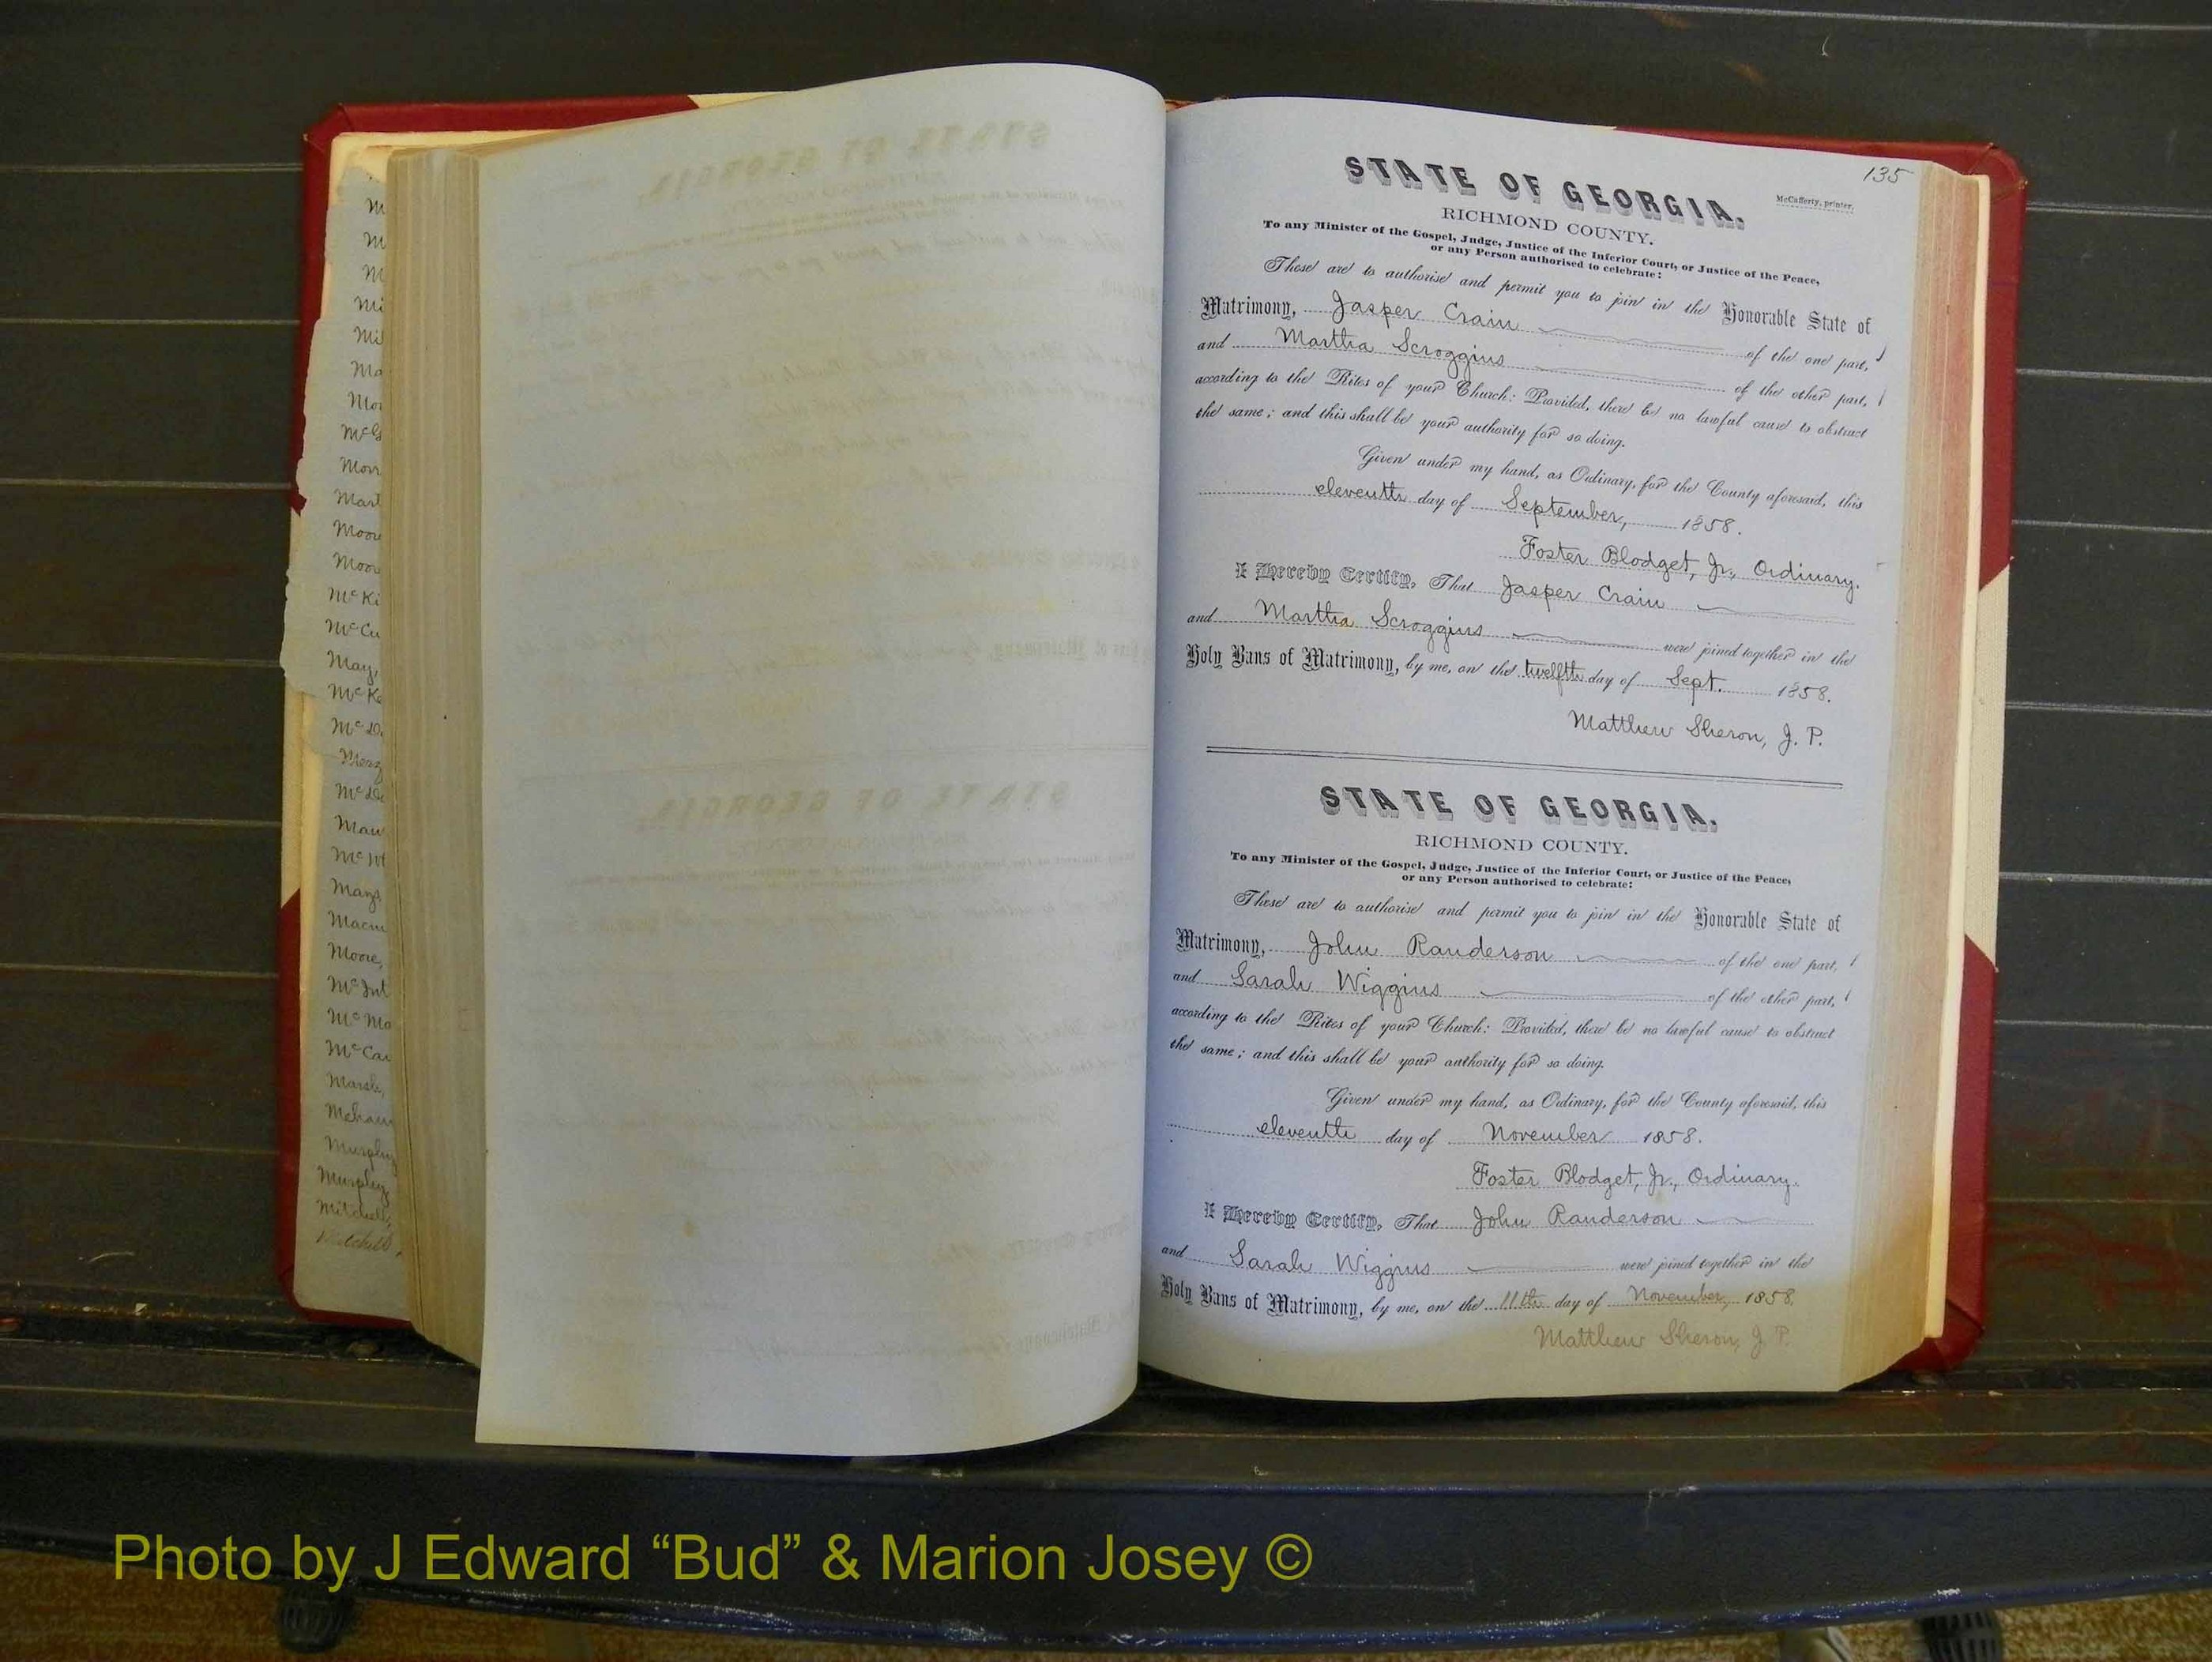 M
M
M
Mi
Mi
Ma
Mo
McG
Morr
Mart
Moore
Moor
McKi
McCu
May,
McKe
McD
McDa
Mau
McInt
Mays
Macm
Moore,
McInt
McMa
McCar
Marsh,
Murphy
Murphy,
Mitchell,
Mitchell,
135
McCafferty, printer.
STATE OF GEORGIA.
RICHMOND COUNTY.
To any Minister of the Gospel, Judge, Justice of the Inferior Court, or Justice of the Peace,
or any Person authorised to celebrate:
These are to authorise and permit you to join in the Honorable State of
Matrimony, Jasper Crain of the one part,
and Martha Scroggins of the other part,
according to the Rites of your Church: Provided, there be no lawful cause to obstruct
the same; and this shall be your authority for so doing.
Given under my hand, as Ordinary, for the County aforesaid, this
eleventh day of September, 1858.
Foster Blodget, Jr., Ordinary.
I Hereby Certify, That Jasper Crain
and Martha Scroggins were joined together in the
Holy Bans of Matrimony, by me, on the twelfth day of Sept. 1858.
Matthew Sheron, J. P.
STATE OF GEORGIA.
RICHMOND COUNTY.
To any Minister of the Gospel, Judge, Justice of the Inferior Court, or Justice of the Peace,
or any Person authorised to celebrate:
These are to authorise and permit you to join in the Honorable State of
Matrimony, John Randerson of the one part,
and Sarah Wiggins of the other part,
according to the Rites of your Church: Provided, there be no lawful cause to obstruct
the same; and this shall be your authority for so doing.
Given under my hand, as Ordinary, for the County aforesaid, this
eleventh day of November 1858.
Foster Blodget, Jr., Ordinary.
I Hereby Certify, That John Randerson
and Sarah Wiggins were joined together in the
Holy Bans of Matrimony, by me, on the 11th day of November, 1858.
Matthew Sheron, J. P.
Photo by J Edward “Bud” & Marion Josey ©